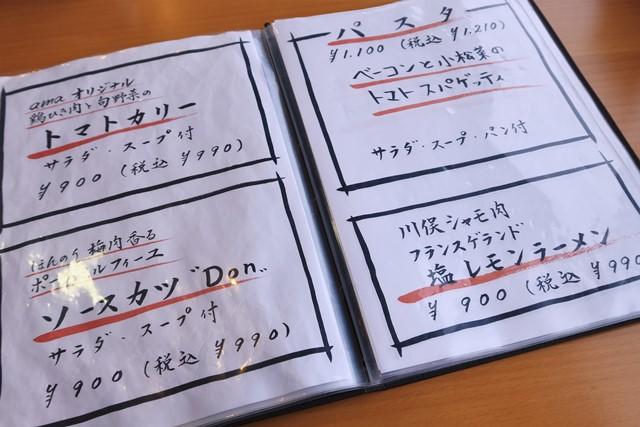 ama オリジナル
鶏ひき肉と旬野菜の
トマトカリー
サラダ・スープ付
¥900 (税込 ¥990)
ほんのり梅肉香る
ソースカツ "Don"
サラダ・スープ付
¥900 (税込 ¥990)
パスタ
¥1,100 (税込 ¥1,210)
ベーコンと小松菜の
トマトスパゲッティ
サラダ・スープ・パン付
川俣シャモ肉
フランスゲランド
塩レモンラーメン
¥900 (税込 ¥990